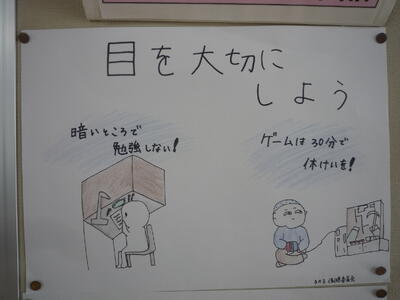 目を大切に
しよう
暗いところで
勉強しない!
ゲームは30分で
休けいを!